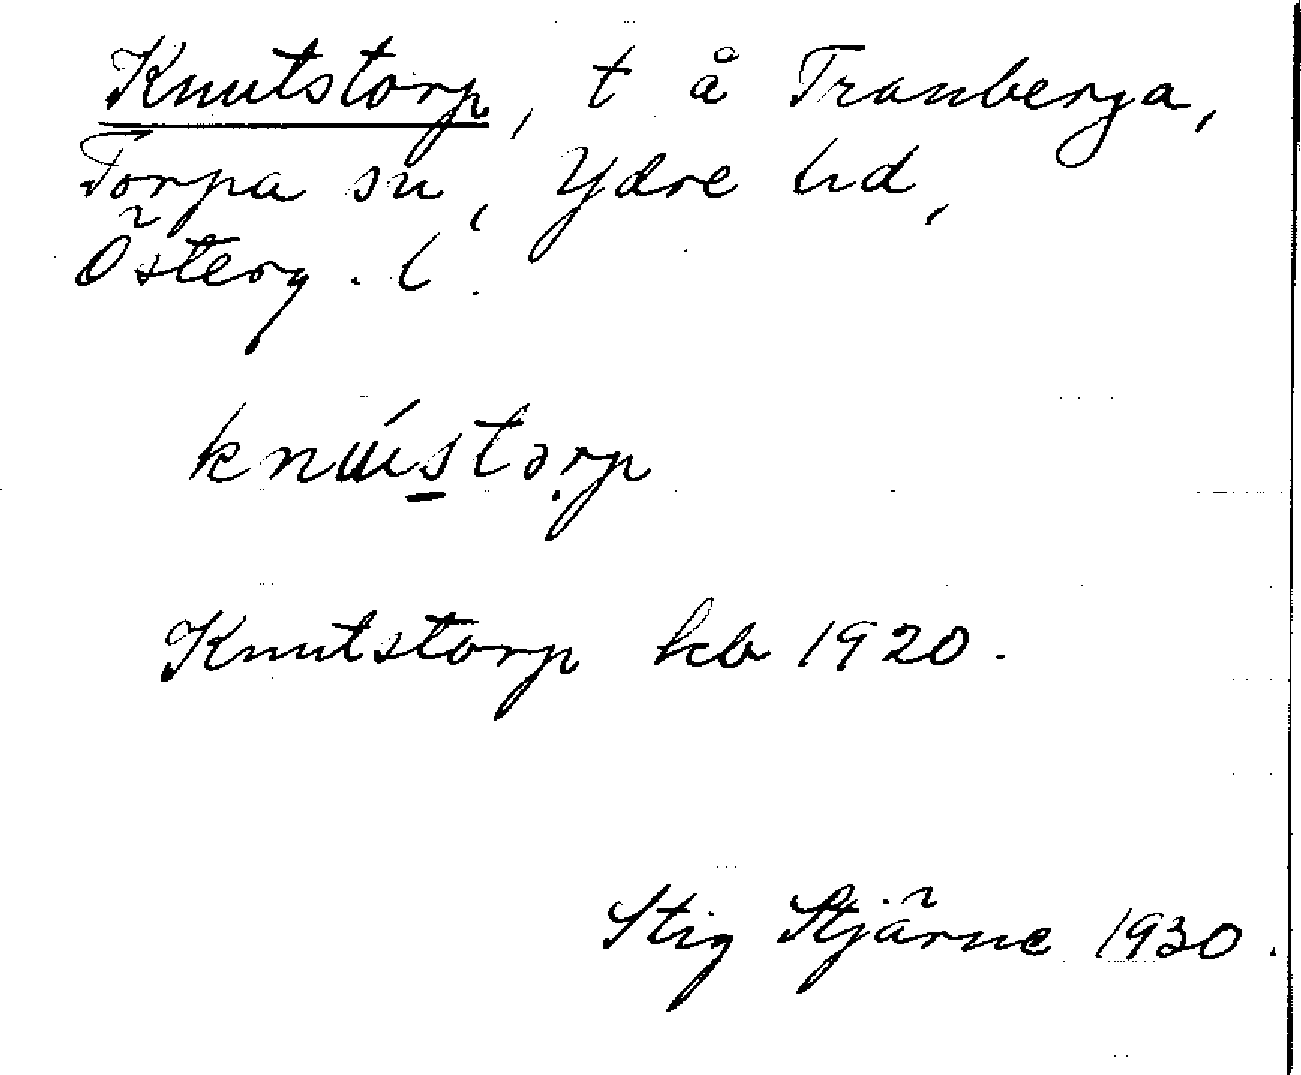 Knutstorp, t å Tranberga,
Torpa sn, Ydre hd,
Österg. l.
knústo̩rp
Knutstorp kb 1920.
Stig Stjärne 1930.